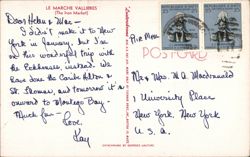 LE MARCHE VALLIERES
(The Iron Market)
Dear Helen & Mac —
I didn't make it to New
York in January, but I'm
on this wonderful trip with
the instead. We
have done the Caribe Hilton &
St. Thomas, and tomorrow it's
onward to Montego Bay —
Much fun —
Love,
Kay
Par Avion
POSTCARD
Mr & Mrs. W.A. Macdonald
1 University Place
New York, New York
U. S. A.